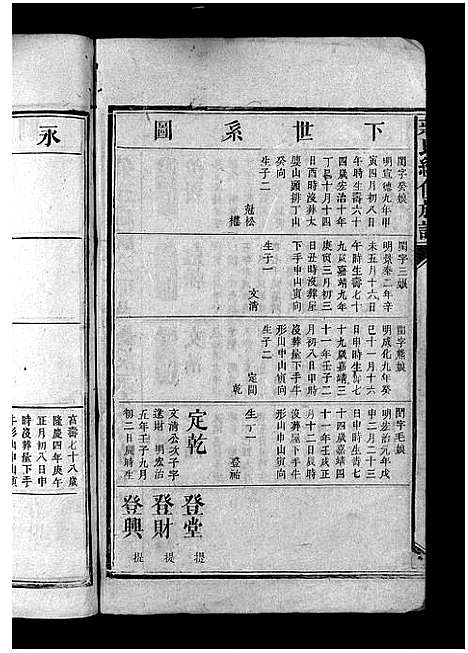 氏續修族譜
下世系圖
閨字癸娘
明宣德九年甲
寅四月初八日
午時生壽六十
四歲宏治十年
丁巳十月十四
日酉時沒葬太
壟山頭排丁山
癸向
生子二
松
權
閨字三娘
明景泰二年辛
未五月十六日
午時生壽七十
九歲嘉靖九年
庚寅三月初三
日丑時沒葬屋
下手申山寅向
生子一
文清
閨字熊娘
明成化九年癸
巳十一月十六
日申時生壽七
十九歲嘉靖三
十一年壬子二
月初八日申時
沒葬屋下手牛
形山申山寅向
生子二
定閭
乾
閨字毛娘
明宏治元年戊
申二月二十三
日申時生壽七
十四歲嘉靖四
十一年壬戌正
月十二日辰時
沒葬屋下手牛
形山申山寅向
生子一
登祐
定乾
文清公次子字
遂財 明宏治
五年壬子九月
初二日辰時生
登堂 提
登財 提
登興 提
永
宮壽七十八歲
隆慶四年庚午
正月初八日申
時沒葬屋下手
牛形山申山寅